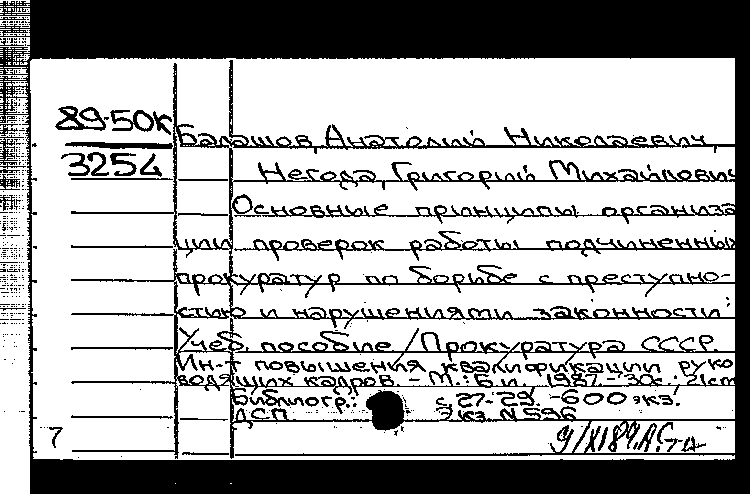 89-50К
3254
Балашов, Анатолий Николаевич,
Негода, Григорий Михайлович
Основные принципы организа
ции проверок работы подчиненных
прокуратур по борьбе с преступно-
стью и нарушениями законности:
Учеб. пособие / Прокуратура СССР.
Ин-т повышения квалификации руко
водящих кадров. - М.: Б. и. 1987. - 30с.; 21cm
Библиогр.: с. 27-29. - 600 экз.
ДСП. Экз. N 596
7